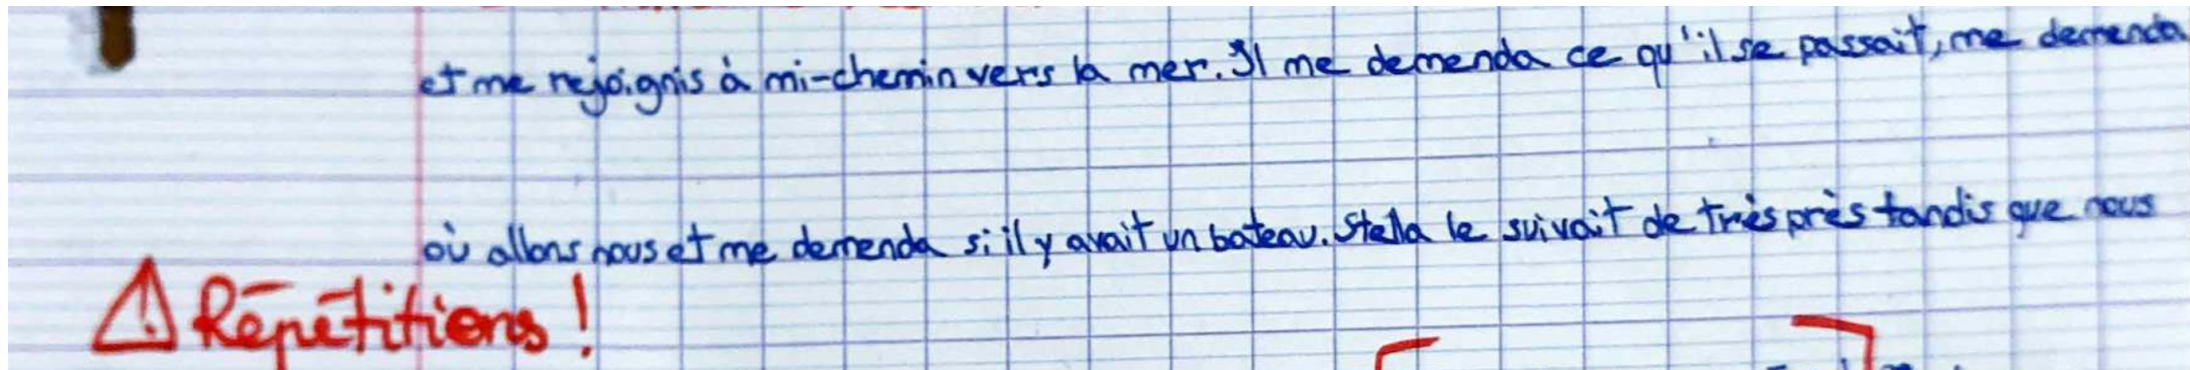 et me rejoignis à mi-chemin vers la mer. Il me demenda ce qu'il se passait, me demenda
où allons nous et me demenda si il y avait un bateau. Stella le suivait de très près tandis que nous
⚠ Répétitions !